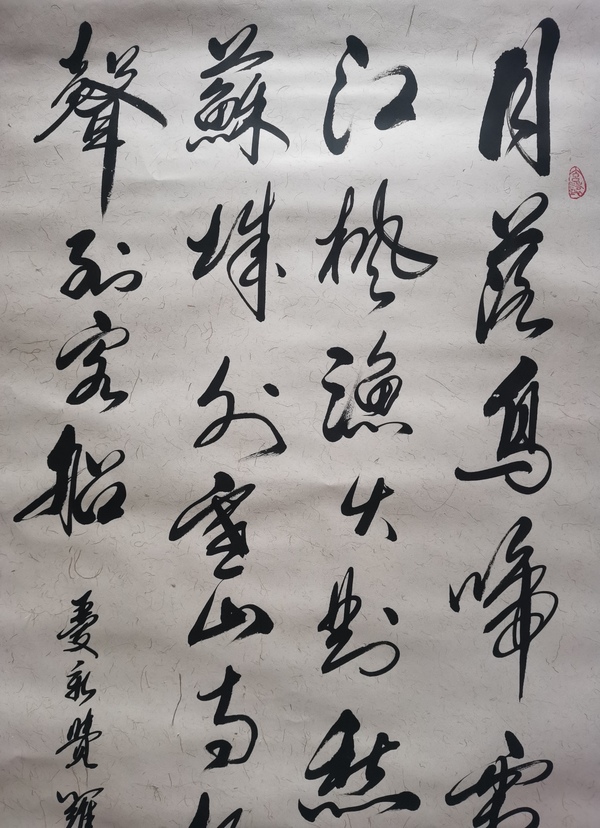 月落烏啼
江楓漁火對愁
蘇城外寒山寺
聲到客船
愛新覺羅